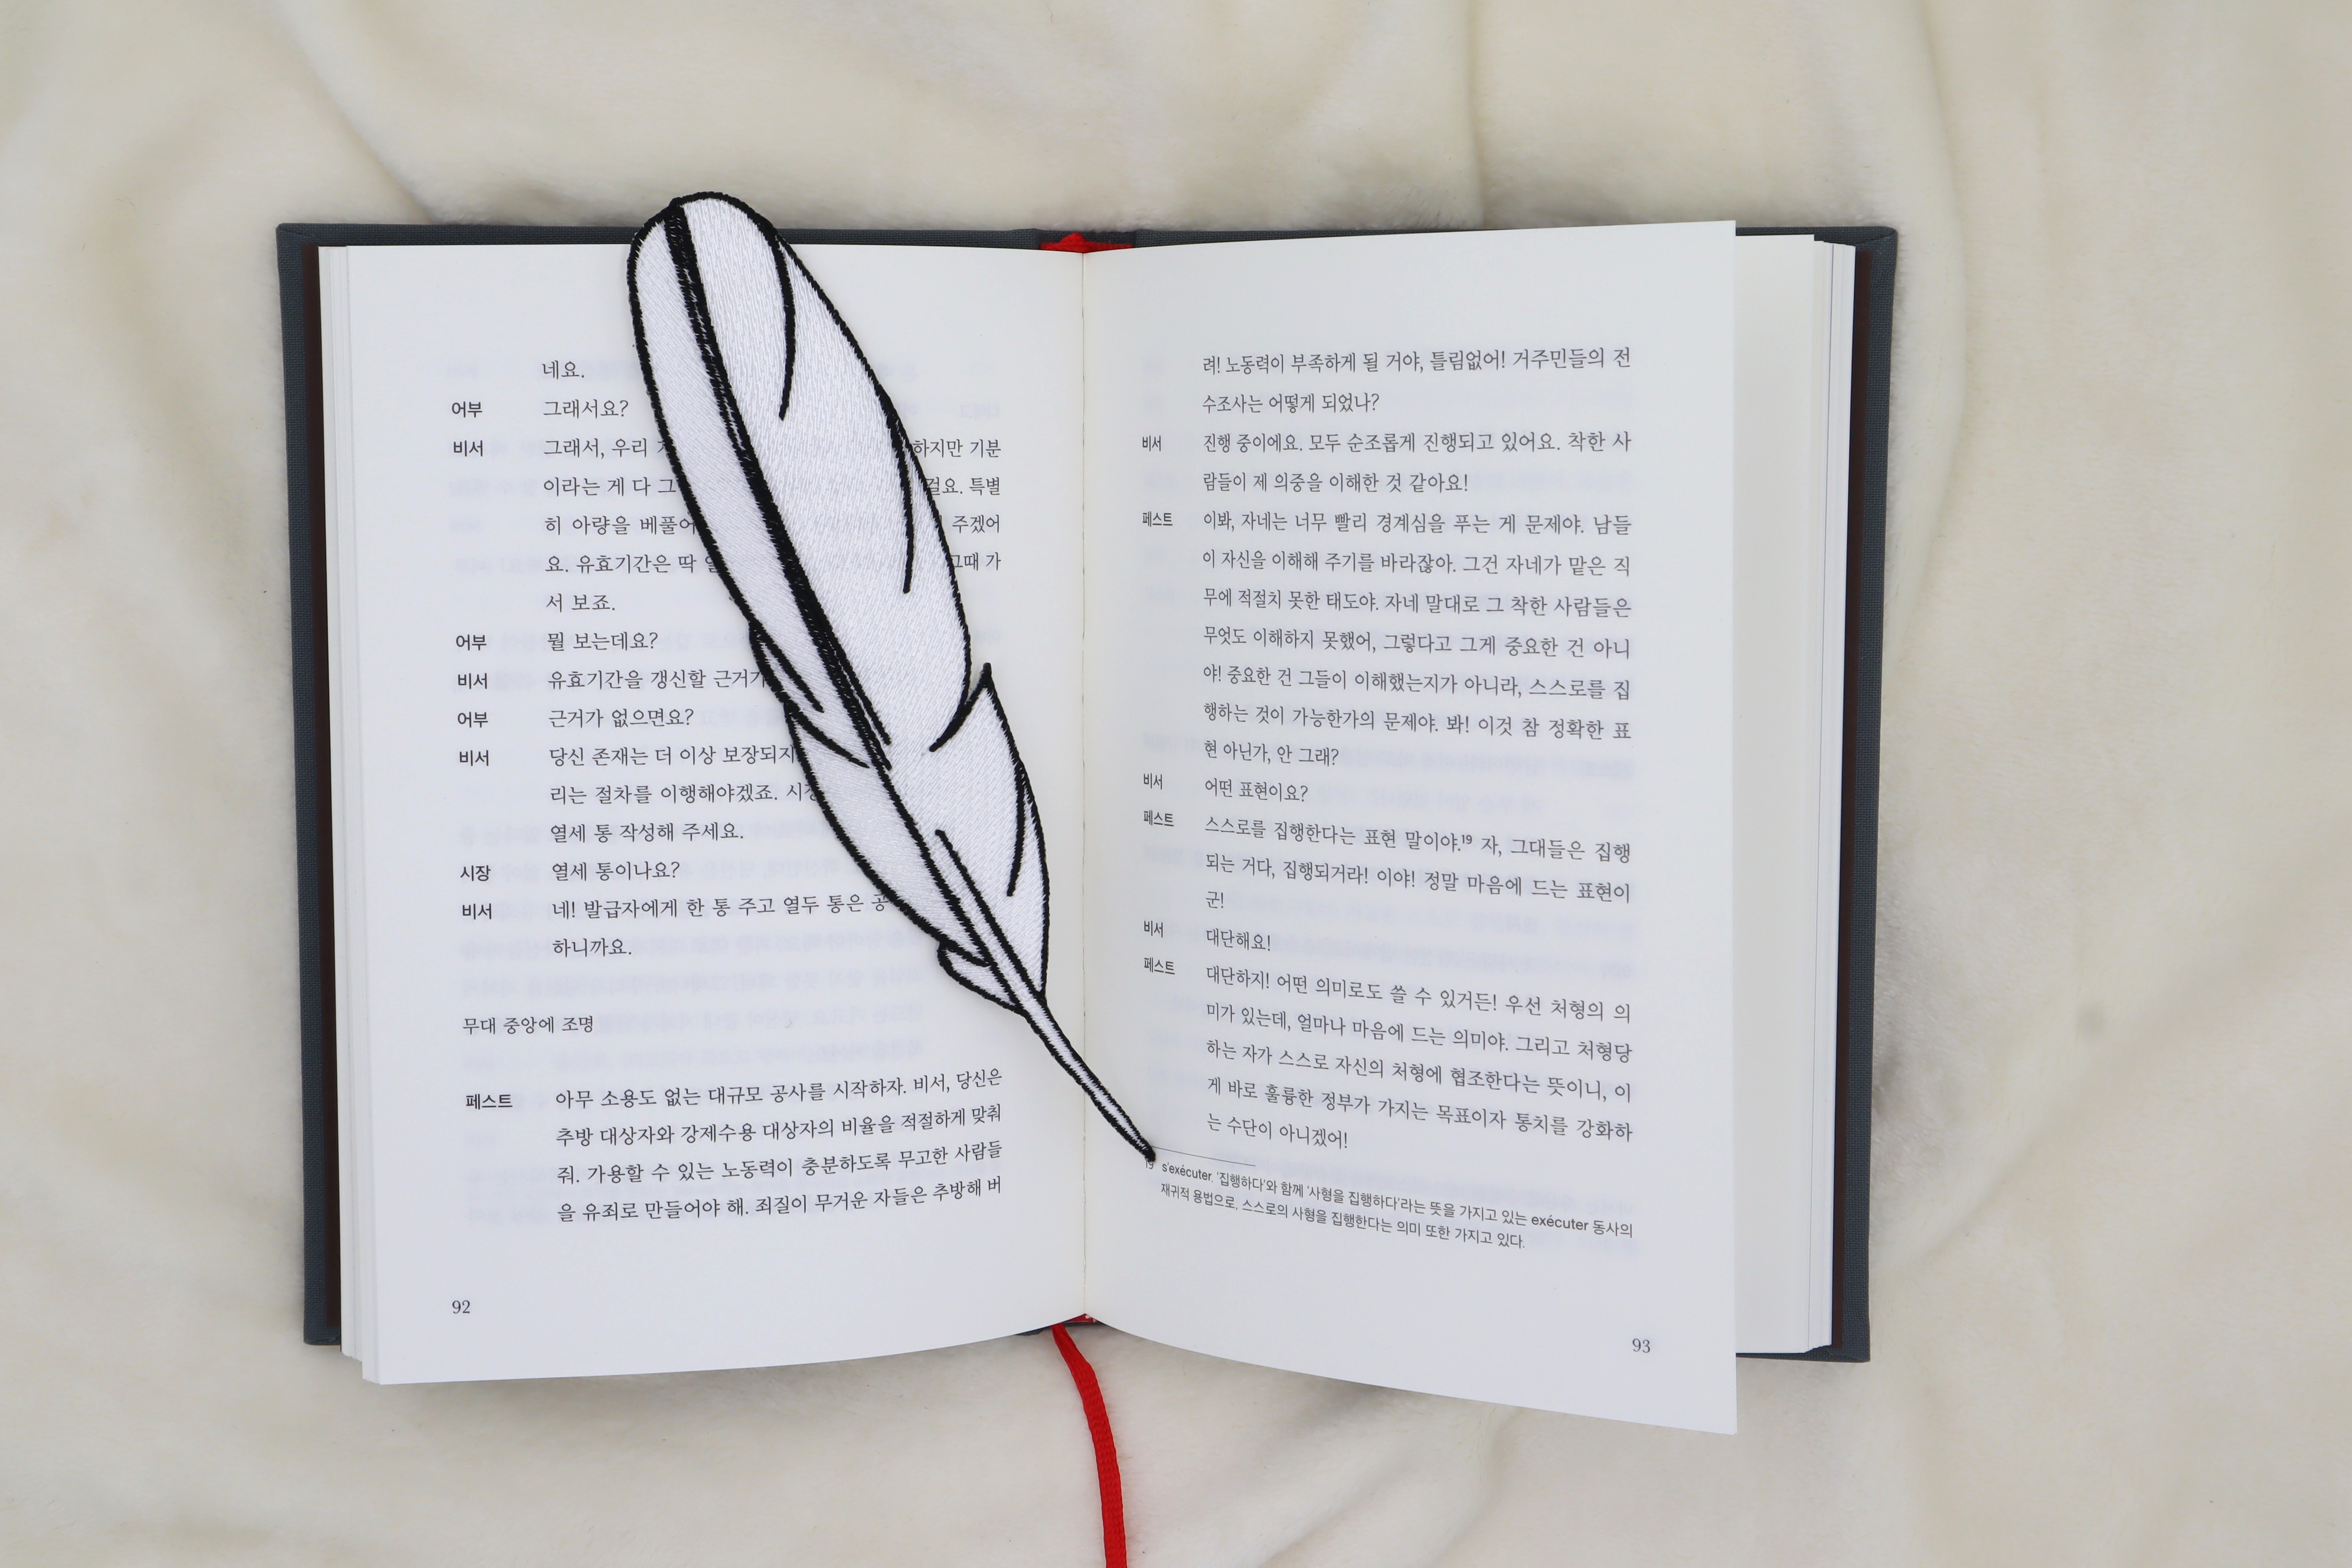 네요.
어부 그래서요?
비서 그래서, 우리 하지만 기분
이라는 게 다 그 걸요. 특별
히 아량을 베풀어 주겠어
요. 유효기간은 딱 그때 가
서 보죠.
어부 뭘 보는데요?
비서 유효기간을 갱신할 근거가
어부 근거가 없으면요?
비서 당신 존재는 더 이상 보장되지
리는 절차를 이행해야겠죠. 시장
열세 통 작성해 주세요.
시장 열세 통이나요?
비서 네! 발급자에게 한 통 주고 열두 통은 공
하니까요.
무대 중앙에 조명
페스트 아무 소용도 없는 대규모 공사를 시작하자. 비서, 당신은
추방 대상자와 강제수용 대상자의 비율을 적절하게 맞춰
줘. 가용할 수 있는 노동력이 충분하도록 무고한 사람들
을 유죄로 만들어야 해. 죄질이 무거운 자들은 추방해 버
92
려! 노동력이 부족하게 될 거야, 틀림없어! 거주민들의 전
수조사는 어떻게 되었나?
비서 진행 중이에요. 모두 순조롭게 진행되고 있어요. 착한 사
람들이 제 의중을 이해한 것 같아요!
페스트 이봐, 자네는 너무 빨리 경계심을 푸는 게 문제야. 남들
이 자신을 이해해 주기를 바라잖아. 그건 자네가 맡은 직
무에 적절치 못한 태도야. 자네 말대로 그 착한 사람들은
무엇도 이해하지 못했어, 그렇다고 그게 중요한 건 아니
야! 중요한 건 그들이 이해했는지가 아니라, 스스로를 집
행하는 것이 가능한가의 문제야. 봐! 이것 참 정확한 표
현 아닌가, 안 그래?
비서 어떤 표현이요?
페스트 스스로를 집행한다는 표현 말이야.¹⁹ 자, 그대들은 집행
되는 거다, 집행되거라! 이야! 정말 마음에 드는 표현이
군!
비서 대단해요!
페스트 대단하지! 어떤 의미로도 쓸 수 있거든! 우선 처형의 의
미가 있는데, 얼마나 마음에 드는 의미야. 그리고 처형당
하는 자가 스스로 자신의 처형에 협조한다는 뜻이니, 이
게 바로 훌륭한 정부가 가지는 목표이자 통치를 강화하
는 수단이 아니겠어!
19 s'exécuter. '집행하다'와 함께 '사형을 집행하다'라는 뜻을 가지고 있는 exécuter 동사의
재귀적 용법으로, 스스로의 사형을 집행한다는 의미 또한 가지고 있다.
93